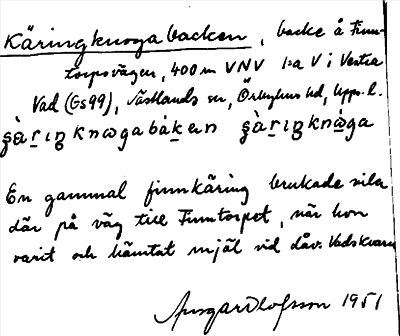 Käringknogabacken, backe å Finn-
torpsvägen, 400 m VNV 1:a V i Västra
Vad (Gs99), Västlands sn, Örbyhus hd, Upps. l.
En gammal finnkäring brukade vila
där på väg till Finntorpet, när hon
varit och hämtat mjöl vid dåv. Vads kvarn
Ansgar Olofsson 1951